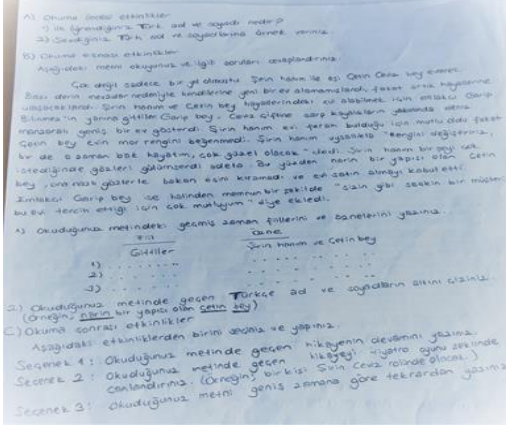 A) Okuma öncesi etkinlikler
1) İlk öğrendiğiniz Türk ad ve soyadı nedir?
2) Sevdiğiniz Türk ad ve soyadlarına örnek veriniz.
B) Okuma esnası etkinlikler
Aşağıdaki metni okuyunuz ve ilgili soruları cevaplandırınız.
Çok değil sadece bir yıl olmuştu Şirin hanım ile eşi Çetin Ceviz bey evleneli.
Bazı derin mevzular nedeniyle kendilerine yeni bir ev alamamışlardı fakat artık hayallerine
ulaşacaklardı. Şirin hanım ve Çetin bey hayallerindeki evi alabilmek için emlakçı Garip
Bilmez'in yanına gittiler. Garip bey, Ceviz çiftine sarp kayalıkların yanında deniz
manzaralı geniş bir ev gösterdi. Şirin hanım evi ferah bulduğu için mutlu oldu fakat
Çetin bey evin mor rengini beğenmedi. Şirin hanım uysallıkla "rengini değiştiririz,
bir de o zaman bak hayatım, çok güzel olacak" dedi. Şirin hanım bir şeyi çok
istediğinde gözleri gülümserdi adeta. Bu yüzden narin bir yapısı olan Çetin
bey, ona nazlı gözlerle bakan eşini kıramadı ve evi satın almayı kabul etti.
Emlakçı Garip bey ise halinden memnun bir şekilde "sizin gibi seçkin bir müşteri
bu evi tercih ettiği için çok mutluyum" diye ekledi.
1) Okuduğunuz metindeki geçmiş zaman fiillerini ve öznelerini yazınız.
Fiil Özne
Gittiler Şirin hanım ve Çetin bey
1) . . . . . . . . . . . . . . . .
2) . . . . . . . . . . . . . . . .
3) . . . . . . . . . . . . . . . .
2) Okuduğunuz metinde geçen Türkçe ad ve soyadların altını çiziniz.
(Örneğin; narin bir yapısı olan çetin bey)
C) Okuma sonrası etkinlikler
Aşağıdaki etkinliklerden birini seçiniz ve yapınız.
Seçenek 1: Okuduğunuz metinde geçen hikayenin devamını yazınız.
Seçenek 2: Okuduğunuz metinde geçen hikayeyi tiyatro oyunu şeklinde
canlandırınız. (Örneğin; bir kişi Şirin Ceviz rolünde olacak.)
Seçenek 3: Okuduğunuz metni geniş zamana göre tekrardan yazınız